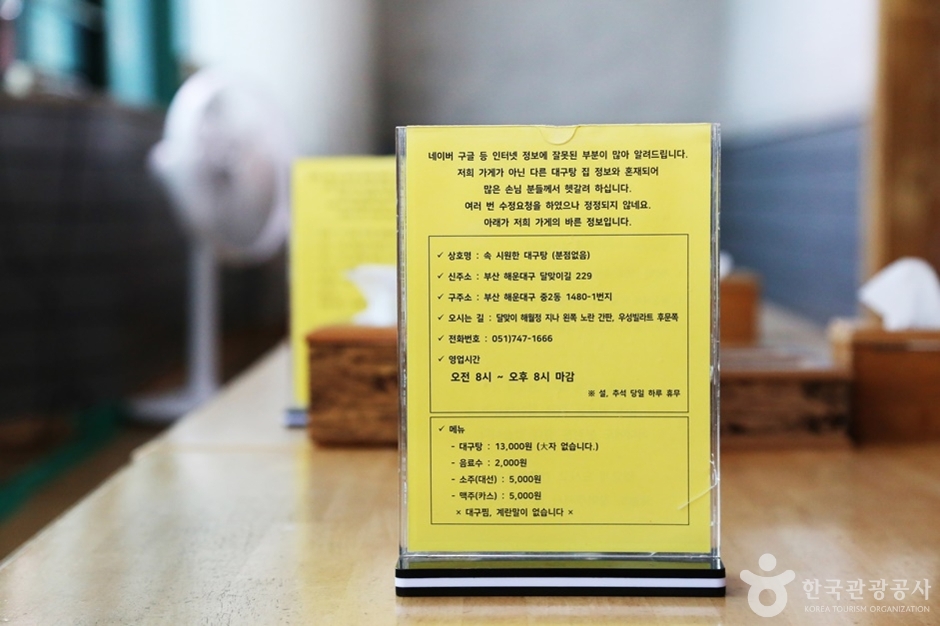 네이버 구글 등 인터넷 정보에 잘못된 부분이 많아 알려드립니다.
저희 가게가 아닌 다른 대구탕 집 정보와 혼재되어
많은 손님 분들께서 헷갈려 하십니다.
여러 번 수정요청을 하였으나 정정되지 않네요.
아래가 저희 가게의 바른 정보입니다.
✓ 상호명 : 속 시원한 대구탕 (분점없음)
✓ 신주소 : 부산 해운대구 달맞이길 229
✓ 구주소 : 부산 해운대구 중2동 1480-1번지
✓ 오시는 길 : 달맞이 해월정 지나 왼쪽 노란 간판, 우성빌라트 후문쪽
✓ 전화번호 : 051)747-1666
✓ 영업시간
오전 8시 ~ 오후 8시 마감
※ 설, 추석 당일 하루 휴무
✓ 메뉴
- 대구탕 : 13,000원 (大자 없습니다.)
- 음료수 : 2,000원
- 소주(대선) : 5,000원
- 맥주(카스) : 5,000원
× 대구찜, 계란말이 없습니다 ×
한국관광공사
KOREA TOURISM ORGANIZATION